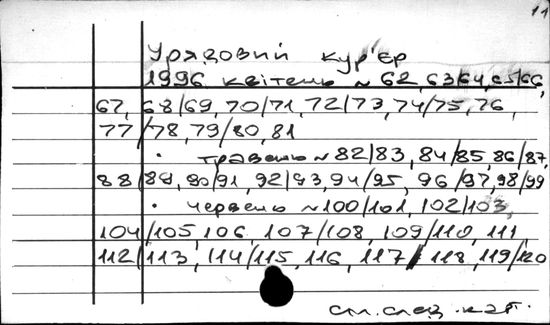 11
Урядовий кур'єр
1996 квітень № 62, 63/64, 65/66,
67, 68/69, 70/71, 72/73, 74/75, 76,
77/78, 79/80, 81
· травень № 82/83, 84/85, 86/87,
88/89, 90/91, 92/93, 94/95, 96/97, 98/99
· червень № 100/101, 102/103,
104/105, 106, 107/108, 109/110, 111,
112/113, 114/115, 116, 117/118, 119/120
см. след. к-